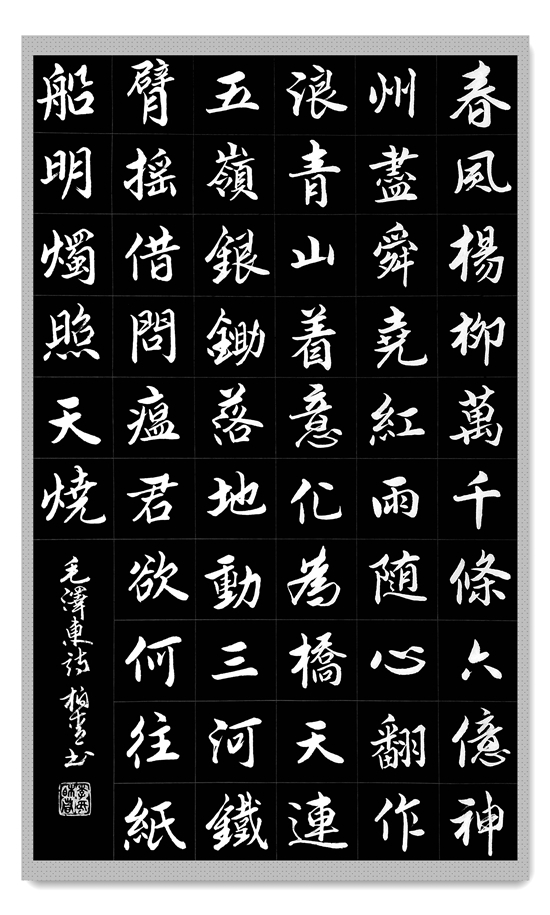 春風楊柳萬千條六億神
州盡舜堯紅雨随心翻作
浪青山着意化為橋天連
五嶺銀鋤落地動三河鐵
臂摇借問瘟君欲何往紙
船明燭照天燒
毛澤東詩 柏書